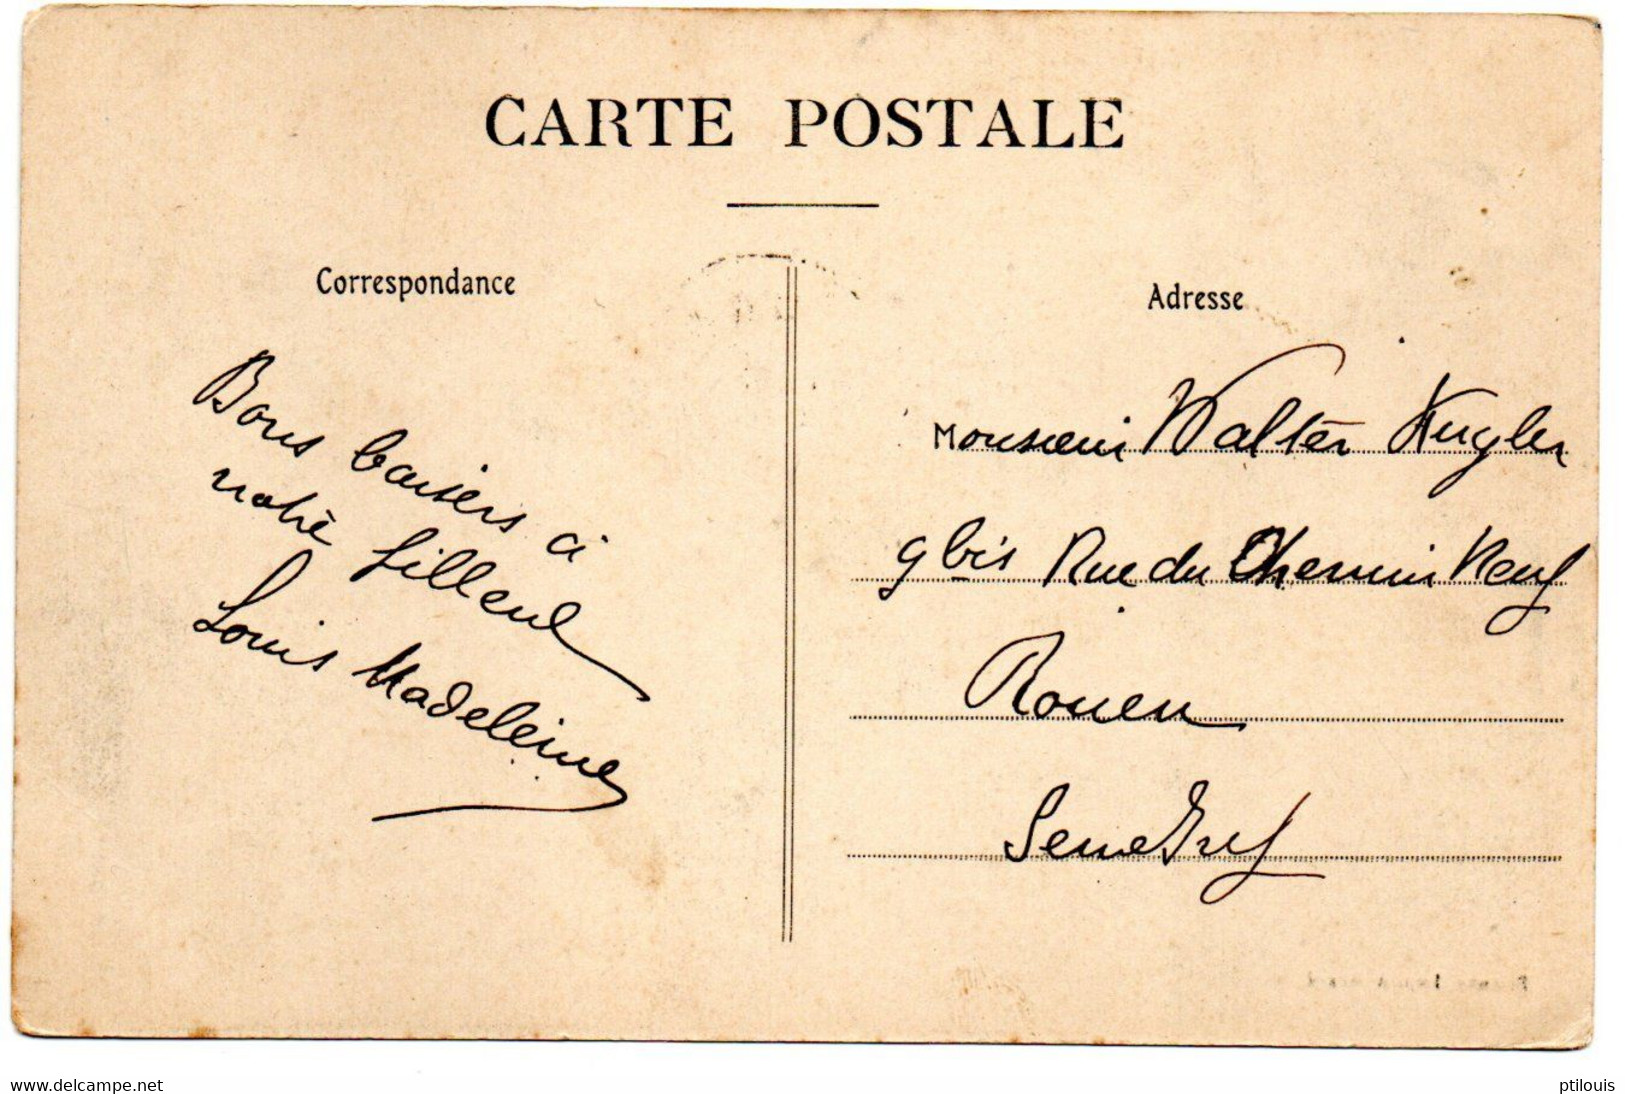 CARTE POSTALE
Correspondance
Bons baisers à
notre filleul
Louis Madeleine
Adresse
Monsieur Walter Kugler
9 bis Rue du Chemin Neuf
Rouen
Seine Infre
www.delcampe.net
ptilouis